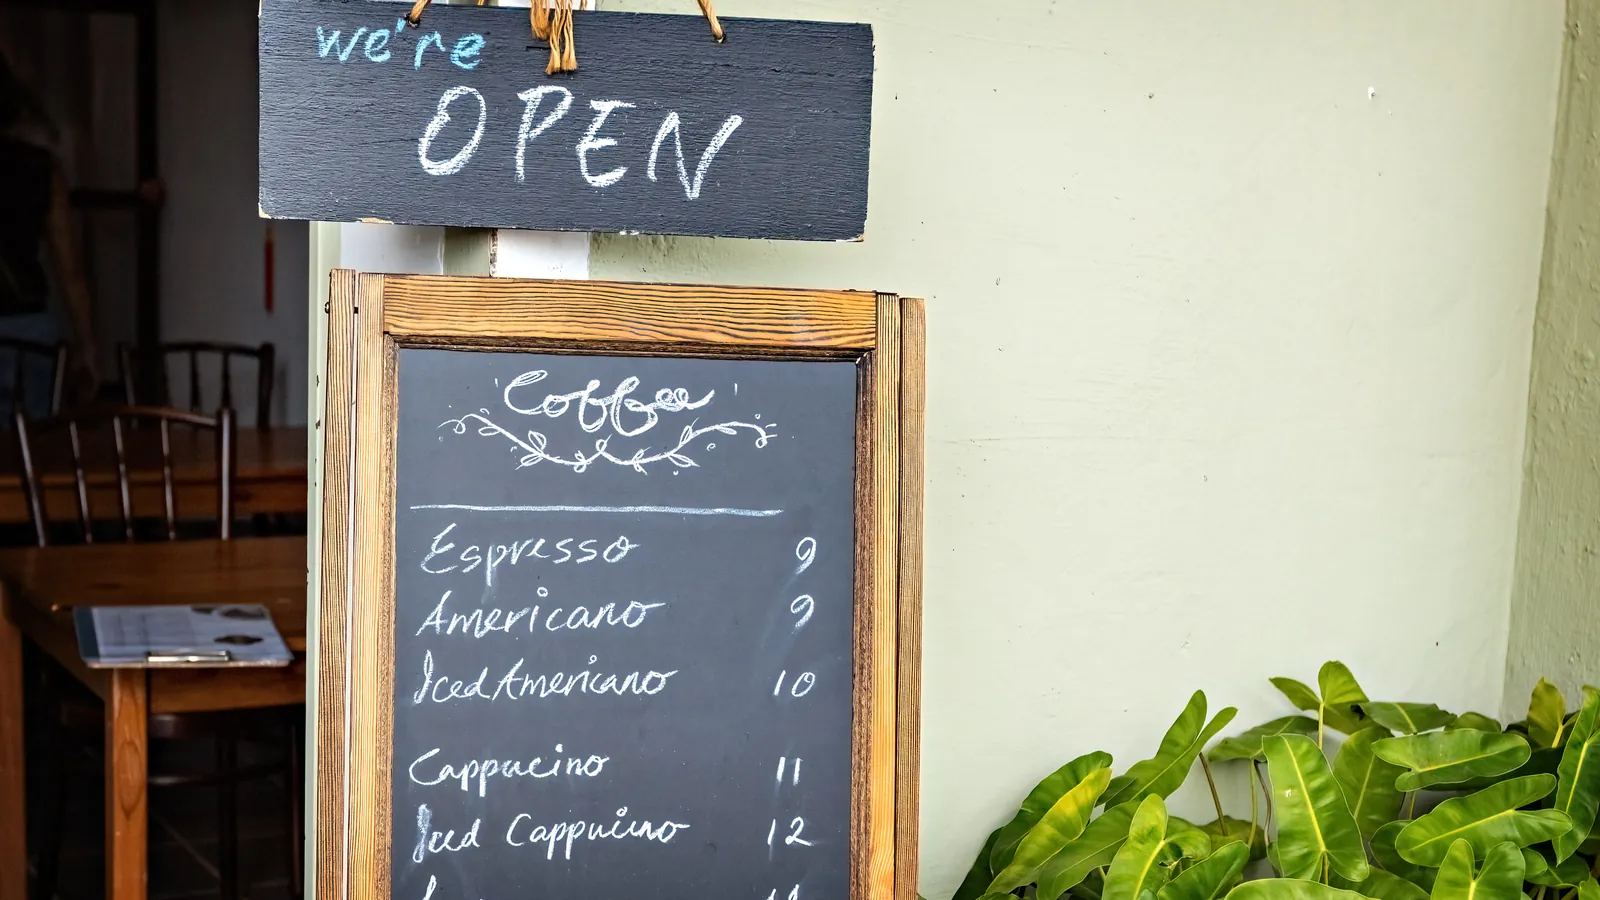 we're
OPEN
Coffee
Espresso 9
Americano 9
Iced Americano 10
Cappucino 11
Iced Cappucino 12